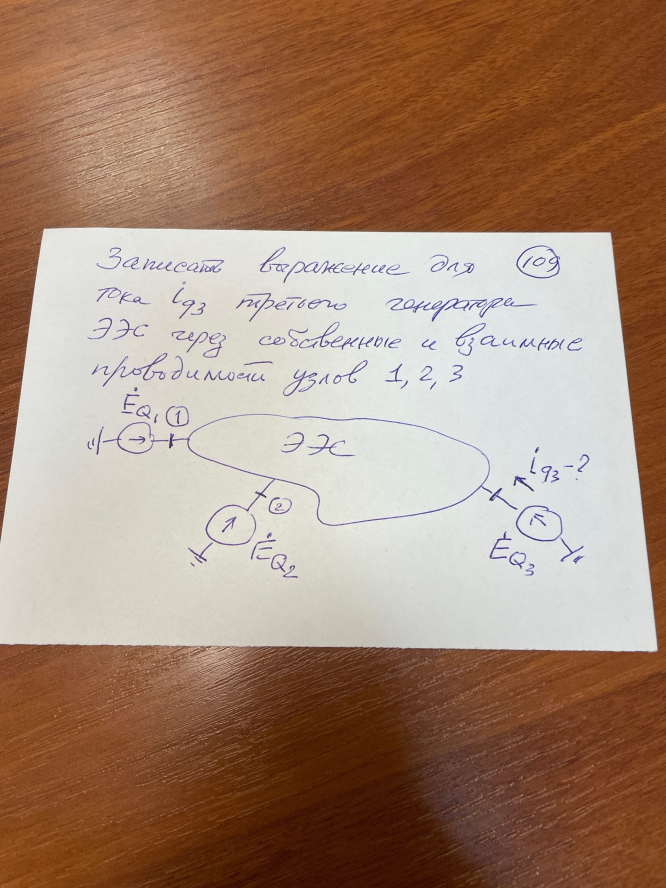 Записать выражение для 109
тока i_q3 третьего генератора
ЭЭС через собственные и взаимные
проводимости узлов 1, 2, 3
Ė_Q1 1
ЭЭС
i_q3 - ?
2
Ė_Q2
Ė_Q3